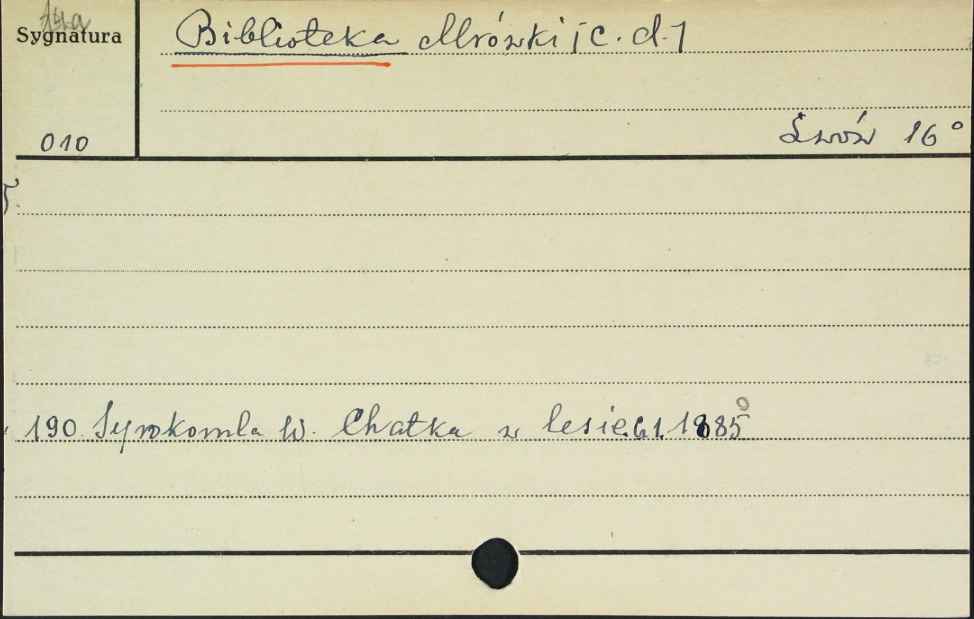 Sygnatura
Biblioteka Mrówki [c. d.]
010
Lwów 16°
190 Syrokomla W. Chatka w lesie. 1885